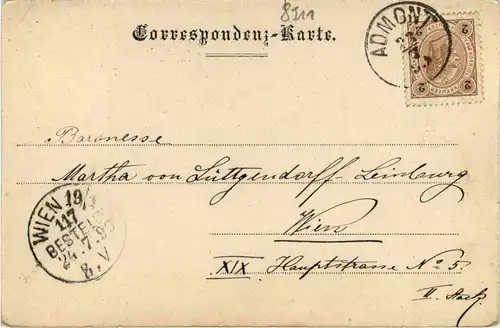 8711
Correspondenz-Karte.
ADMONT
2 2
2 2
Baronesse
Martha von Lüttgendorff-Leinburg
Wien
XIX. Hauptstrasse No 5.
II. Stock
WIEN 19/
117
BESTELLT
24.7.95
8.V